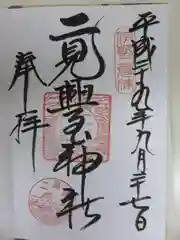 平成二十九年九月二十七日
二見興玉神社
奉拝